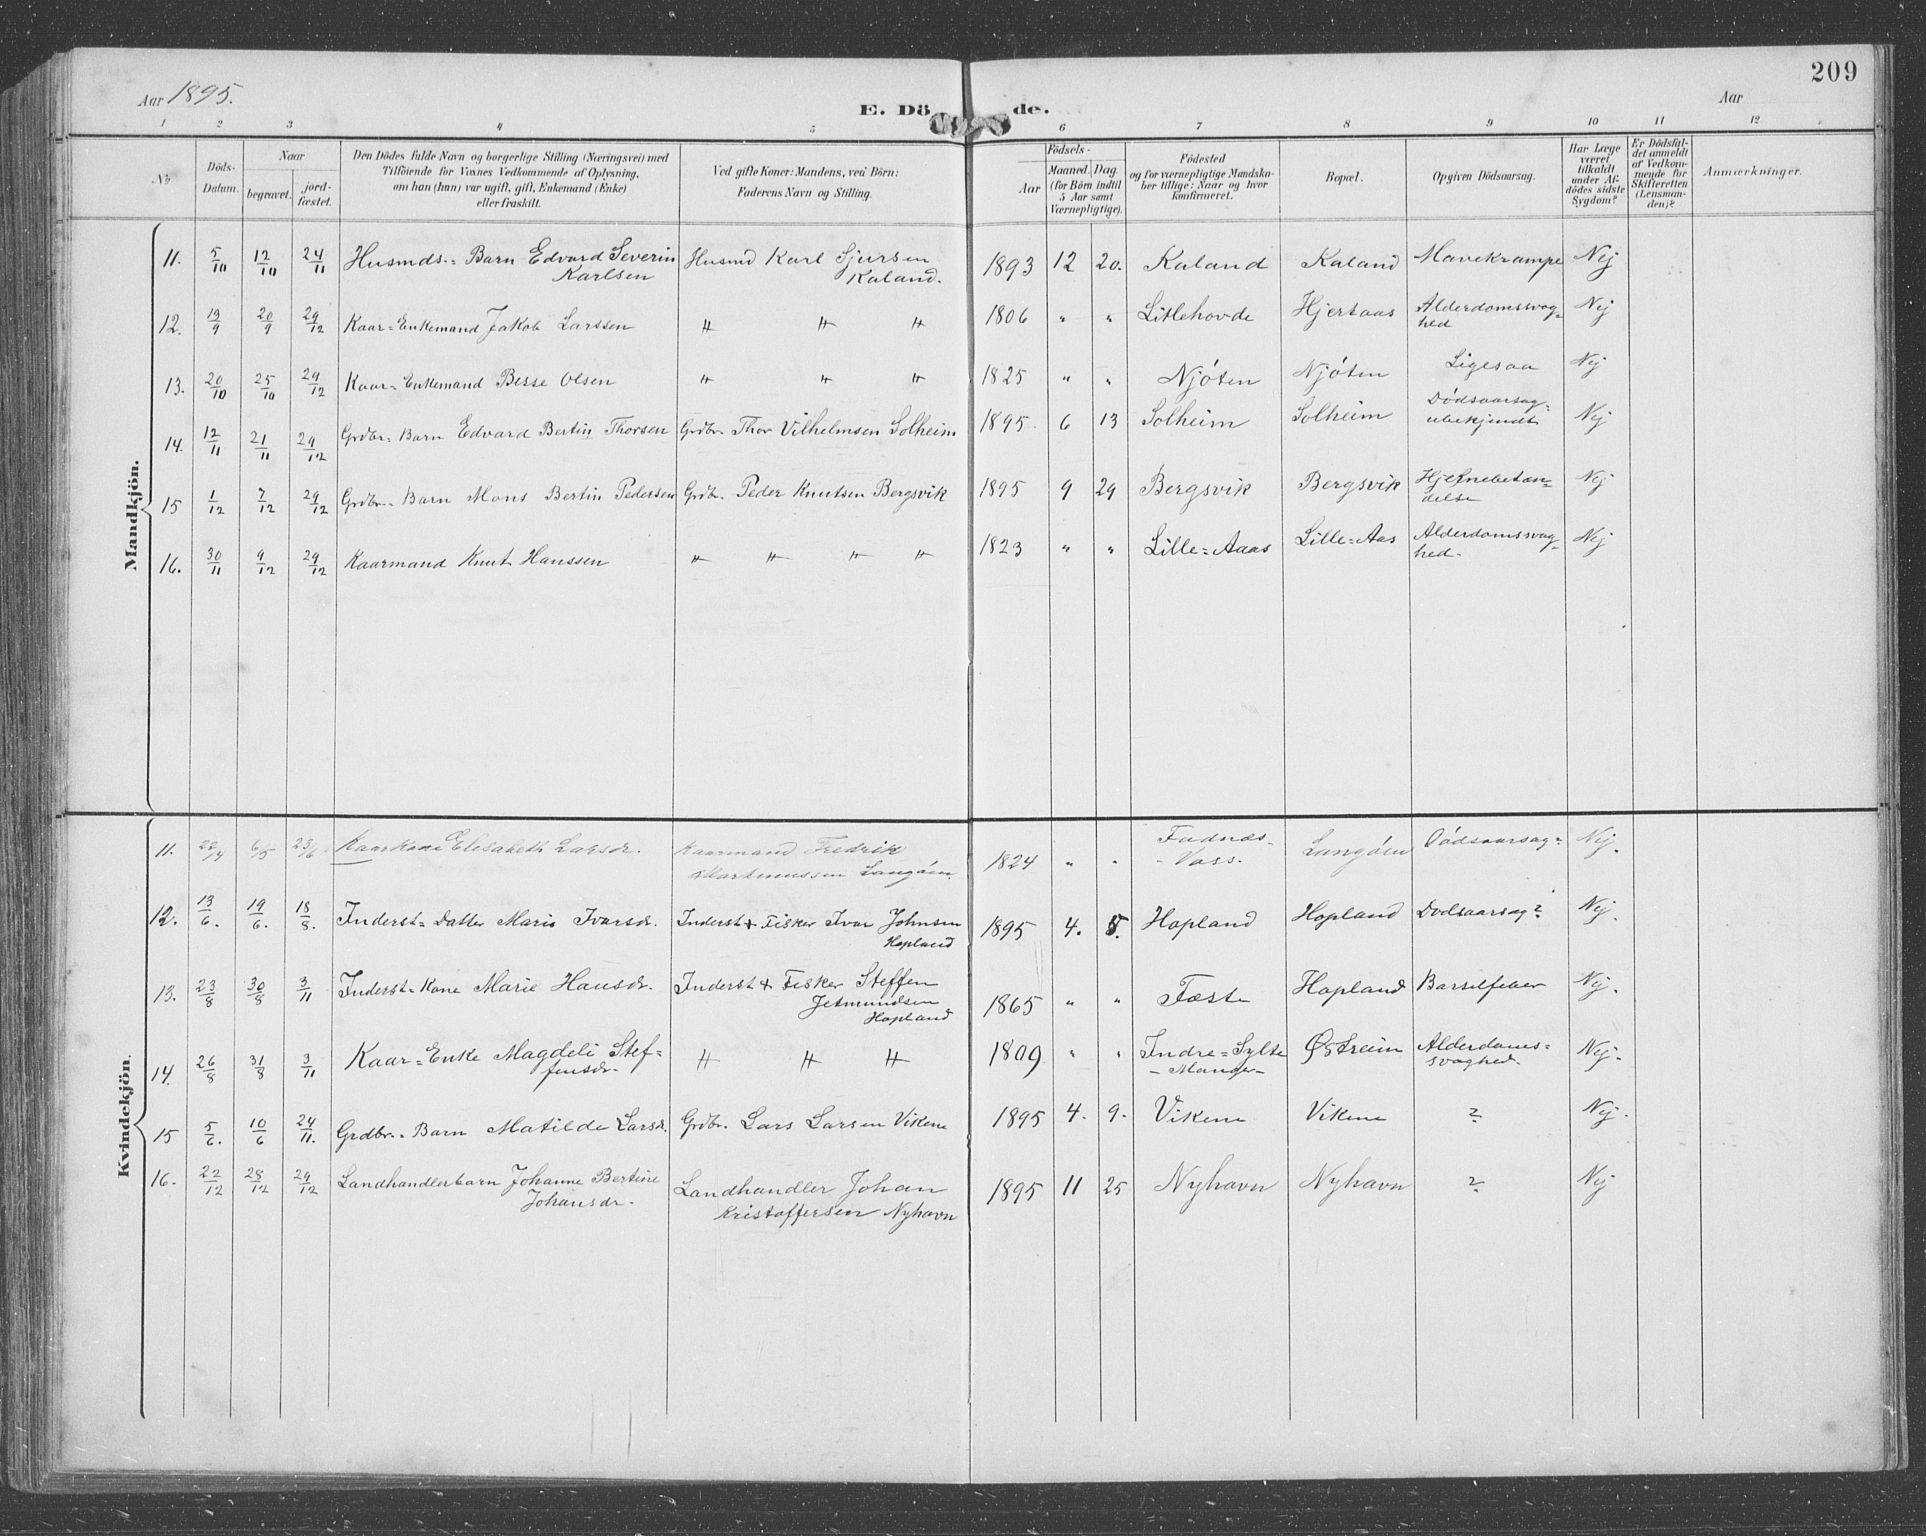 209
Aar 1895.
E. Dö de.
Aar
1 2 3 4 5 6 7 8 9 10 11 12
No
Döds-
Datum.
Naar
begravet.
jord-
fæstet.
Den Dödes fulde Navn og borgerlige Stilling (Næringsvei) med
Tilföiende for Voxnes Vedkommende af Oplysning,
om han (hun) var ugift, gift, Enkemand (Enke)
eller fraskilt.
Ved gifte Koner: Mandens, ved Börn:
Faderens Navn og Stilling.
Födsels-
Aar
Maaned. Dag.
(for Börn indtil
5 Aar samt
Værnepligtige).
Födested
og for værnepligtige Mandska-
ber tillige: Naar og hvor
Konfirmeret.
Bopæl.
Opgiven Dödsaarsag.
Har Læge
været
tilkaldt
under Af-
dödes sidste
Sygdom?
Er Dödsfal-
det anmeldt
af Vedkom-
mende for
Skifteretten
(Lensman-
den)?
Anmærkninger.
Mandkjön.
11. 5/10 12/10 24/11 Husmds.- Barn Edvard Severin Husmd Karl Sjursen 1893 12 20. Kaland Kaland Mavekrampe Nej
Karlsen Kaland.
12. 13/9 20/9 29/12 Kaar=Enkemand Jakob Larssen " " " 1806 " " Litlehovde Hjertaas Alderdomssvag= Nej
hed
13. 20/10 25/10 29/12 Kaar=Enkemand Besse Olsen " " " 1825 " " Njöten Njöten Ligesaa Nej
14. 12/11 21/11 29/12 Grdbr.- Barn Edvard Bertin Thorsen Grdbr. Thor Vilhelmsen Solheim 1895. 6 13 Solheim Solheim Dödsaarsag= Nej
ubekjendt
15 1/12 7/12 29/12 Grdbr.- Barn Mons Bertin Pedersen Grdb. Peder Knutsen Bergsvik 1895 9 29 Bergsvik Bergsvik Hjernebetæn- Nej
delse
16. 30/11 9/12 29/12 Kaarmand Knut Hanssen " " " " 1823 " " Lille=Aaas Lille=Aas Alderdomssvag= Nej
hed.
Kvindekjön.
11. 22/4 6/5 23/6 Kaarkone Elisabeth Larsdr. Kaarmand Fredrik 1824 " " Fadnæs- Langöen Dödsaarsag= Nej.
Martinussen Langöen. - Voss.
12. 13/6. 19/6. 18/8. Inderst= Datter Maria Ivarsdr. Inderst + Fisker Ivar Johnsen 1895 4. 5. Hopland Hopland Dödsaarsag? Nej.
Hopland
13. 23/8 30/8 3/11 Inderst= Kone Marie Hansdr. Inderst + Fisker Steffen 1865 " " Fæste Hopland Barselfeber Nej.
Jetmundsen
Hopland
14. 26/8 31/8 3/11 Kaar=Enke Magdeli Stef= " " " 1809 " " Indre=Sylte Østreim Alderdoms= Nej.
fensdr. - Manger - svaghed.
15 5/6. 10/6 24/11. Grdbr.- Barn Matilde Larsdr. Grdbr. Lars Larsen Vikene 1895 4. 9. Vikene Vikene ? Nej.
16. 22/12 28/12 29/12 Landhandlerbarn Johanne Bertine Landhandler Johan 1895 11 25 Nyhavn Nyhavn ? Nej
Johansdr. Kristoffersen Nyhavn